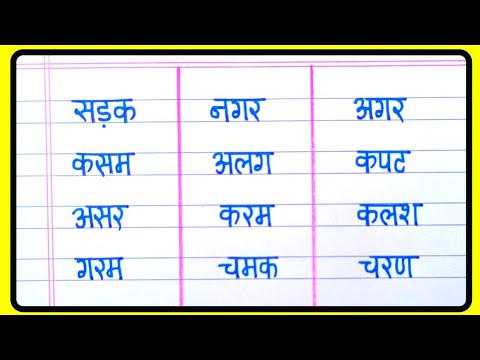 सड़क नगर अगर
कसम अलग कपट
असर करम कलश
गरम चमक चरण